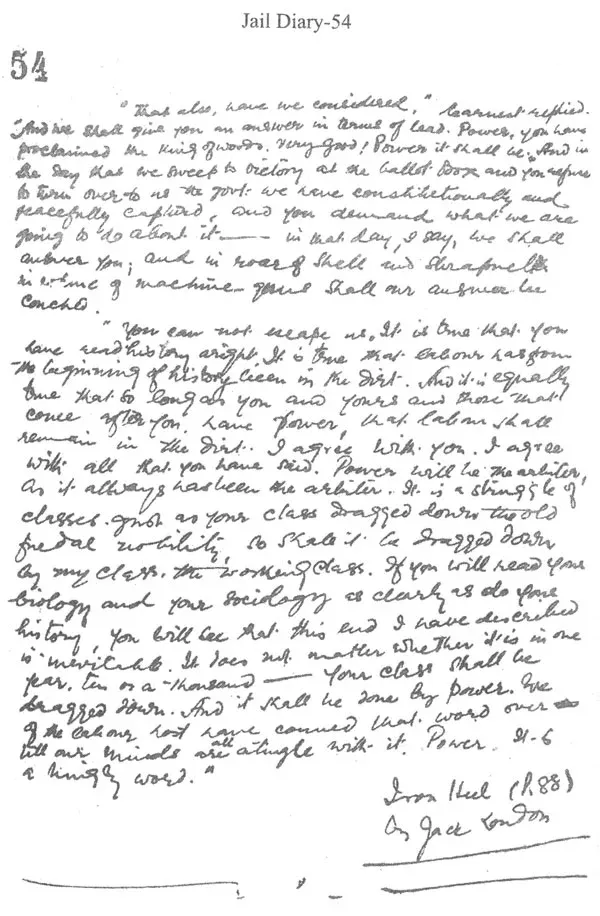 Jail Diary-54
54
"That also, have we considered," Earnest replied.
"And we shall give you an answer in terms of lead. Power, you have
proclaimed the king of words. Very good! Power it shall be. And in
the day that we sweep to victory at the ballot box and you refuse
to turn over to us the govt. we have constitutionally and
peacefully captured, and you demand what we are
going to do about it — in that day, I say, we shall
answer you; and in roar of shell and shrapnel
in whine of machine-guns shall our answer be
couched.
"You can not escape us. It is true that you
have read history aright. It is true that labour has from
the beginning of history been in the dirt. And it is equally
true that so long as you and yours and those that
come after you, have power, that labour shall
remain in the dirt. I agree with you. I agree
with all that you have said. Power will be the arbiter,
as it always has been the arbiter. It is a struggle of
classes. Just as your class dragged down the old
feudal nobility, so shall it be dragged down
by my class, the working class. If you will read your
biology and your sociology as clearly as do your
history, you will see that this end I have described
is inevitable. It does not matter whether it is in one
year, ten or a thousand — your class shall be
dragged down. And it shall be done by power. We
of the labour host have conned that word over
till our minds are all atingle with it. Power. It is
a kingly word."
Iron Heel (P.88)
By Jack London